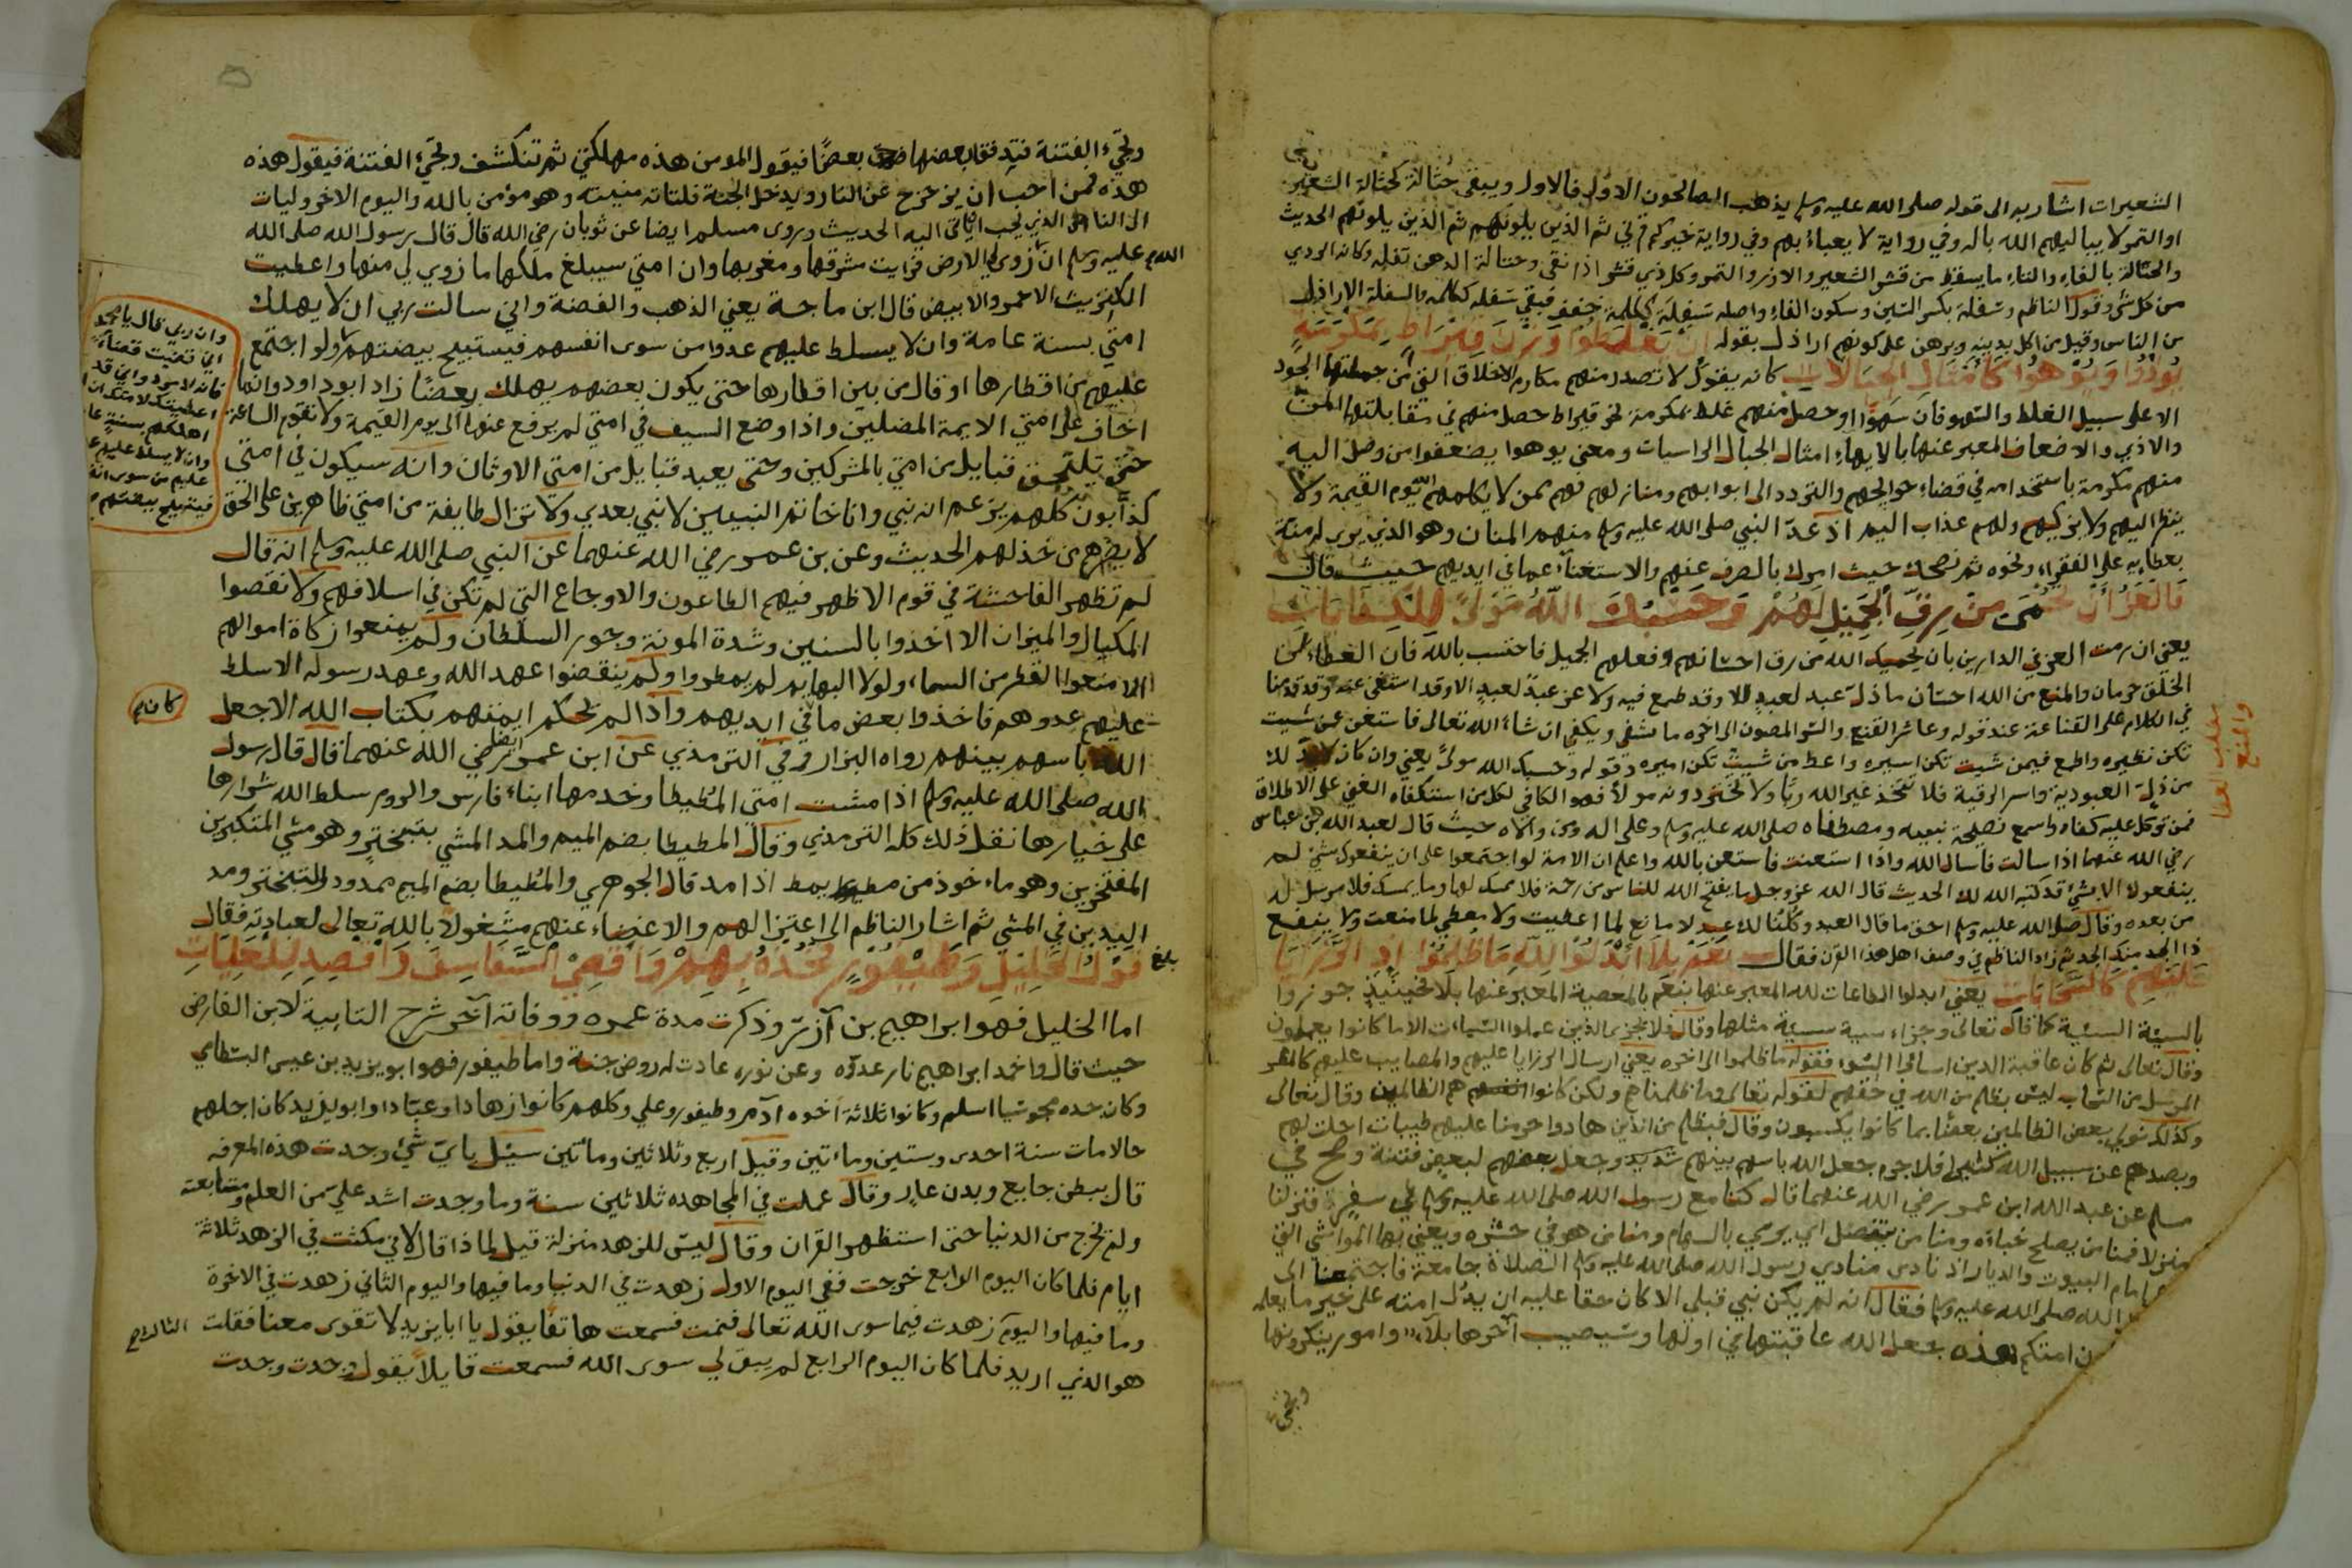 الشعيرات اشار به الى قوله صلى الله عليه وسلم يذهب الصالحون الاول فالاول ويبقى حثالة كحثالة الشعير
او التمر لا يباليهم الله بالة وفي رواية لا يعباء بهم وفي رواية خيركم قرني ثم الذين يلونهم ثم الذين يلونهم الحديث
والحثالة بالفاء والثاء ما يسقط من قشر الشعير والارز والتمر وكل ذي قشر اذا نقي وحثالة الدهن تفله وكانه الردي
من كل شي وقول الناظم وسفلة بكسر السين وسكون الفاء واصله سفلة ككلمة خفف فبقي سفله ككلمه والسفلة الاراذل
من الناس وقيل من اكل بدينه وبرهن على كونهم اراذل بقوله ان يغلطوا وزن قيراط بمكرمة
يوذوا ويوهوا كامثال الجبالات كانه يقول لا تصدر منهم مكارم الاخلاق التي من جملتها الجود
الا على سبيل الغلط والسهو فان سهوا او حصل منهم غلط بمكرمة نحو قيراط حصل منهم في مقابلتها المن
والاذي والاضعاف المعبر عنها بالايهاء امثال الجبال الراسيات ومعنى يوهوا يضعفوا من وصل اليه
منهم مكرمة باستخدامه في قضاء حوايجهم والتردد الى ابوابهم ومنازلهم فهم ممن لا يكلمهم الله يوم القيمة ولا
ينظر اليهم ولا يزكيهم ولهم عذاب اليم اذ عد النبي صلى الله عليه وسلم منهم المنان وهو الذي يرى له منة
بعطايه على الفقراء ونحوه ثم نصحك حيث امرك بالصرف عنهم والاستغناء عما في ايديهم حيث قال
فالعز ان تحمى من رق الجميل لهم وحسبك الله مولى للكفايات
يعني ان رمت العز في الدارين بان يحميك الله من رق احسانهم وفعلهم الجميل فاحتسب بالله فان العطاء من
الخلق حرمان والمنع من الله احسان ما ذل عبد لعبد الا وقد طمع فيه ولا عز عبد لعبد الا وقد استغنى عنه وقد قدمنا
في الكلام على القناعة عند قوله وعاشر القنع والستر المصون الى اخره ما يشفي ويكفي ان شاء الله تعالى فاستغن عمن شيت
تكن نظيره واطمع فيمن شيت تكن اسيره واعط من شيت تكن اميره وقوله وحسبك الله مولى يعني وان كان كذلك
من ذل العبودية واسر الرقية فلا تتخذ غير الله ربا ولا تختر دونه مولا فهو الكافي لكل من استكفاه الغني على الاطلاق
فمن توكل عليه كفاه واسمع نصيحة نبيه ومصطفاه صلى الله عليه وسلم وعلى اله ومن والاه حيث قال لعبد الله بن عباس
رضي الله عنهما اذا سالت فاسال الله واذا استعنت فاستعن بالله واعلم ان الامة لو اجتمعوا على ان ينفعوك بشئ لم
ينفعوك الا بشئ قد كتبه الله لك الحديث قال الله عز وجل ما يفتح الله للناس من رحمة فلا ممسك لها وما يمسك فلا مرسل له
من بعده وقال صلى الله عليه وسلم احق ما قال العبد وكلنا لك عبد لا مانع لما اعطيت ولا معطي لما منعت ولا ينفع
ذا الجد منك الجد ثم زاد الناظم في وصف اهل هذا القرن فقال نعم بلا ابدلوا الله ما ظلموا اذ الرزايا
عليهم كالسحابات يعني ابدلوا الطاعات لله المعبر عنها بنعم بالمعصية المعبر عنها بلا فحينيذ جوزوا
بالسيئة السيئة كما قال تعالى وجزاء سيية سيية مثلها وقال فلا يجزى الذين عملوا السيات الا ما كانوا يعملون
وقال تعالى ثم كان عاقبة الذين اساؤا السوء فقوله ما ظلموا الى اخره يعني ارسال الرزايا عليهم والمصايب عليهم كالمطر
المرسل من السحاب ليس بظلم من الله في حقهم لقوله تعالى وما ظلمناهم ولكن كانوا هم الظالمين وقال تعالى
وكذلك نولي بعض الظالمين بعضا بما كانوا يكسبون وقال فبظلم من الذين هادوا حرمنا عليهم طيبات احلت لهم
وبصدهم عن سبيل الله كثيرا فلا جرم جعل الله باسهم بينهم شديد وجعل بعضهم لبعض فتنة وصح في
مسلم عن عبد الله ابن عمر رضي الله عنهما قال كنا مع رسول الله صلى الله عليه وسلم في سفر فنزلنا
منزلا فمنا من يصلح خباءه ومنا من ينتضل اي يرمي بالسهام ومنا من هو في جشره ويعني بها المواشي التي
امام البيوت والديار اذ نادى منادي رسول الله صلى الله عليه وسلم الصلاة جامعة فاجتمعنا الى
الله صلى الله عليه وسلم فقال انه لم يكن نبي قبلي الا كان حقا عليه ان يدل امته على خير ما يعلمه
ن امتكم هذه جعل الله عاقبتها في اولها وسيصيب آخرها بلاء وامور ينكرونها
وتجئ
وتجيء الفتنة فتدفق بعضها بعضا فيقول المومن هذه مهلكتي ثم تنكشف وتجيء الفتنة فيقول هذه
هذه فمن احب ان يزحزح عن النار ويدخل الجنة فلتاته منيته وهو مؤمن بالله واليوم الاخر وليات
الى الناس الذي يحب ان ياتى اليه الحديث وروى مسلم ايضا عن ثوبان رضي الله قال قال رسول الله صلى الله
عليه وسلم ان الله زوى لي الارض فرايت مشرقها ومغربها وان امتي سيبلغ ملكها ما زوي لي منها واعطيت
الكنزين الاحمر والابيض قال ابن ماجة يعني الذهب والفضة واني سالت ربي ان لا يهلك
امتي بسنة عامة وان لا يسلط عليهم عدوا من سوى انفسهم فيستبيح بيضتهم ولو اجتمع
عليهم من اقطارها او قال من بين اقطارها حتى يكون بعضهم يهلك بعضا زاد ابو داود وانما
اخاف على امتي الايمة المضلين واذا وضع السيف في امتي لم يرفع عنها الى يوم القيمة ولا تقوم الساعة
حتى تلتحق قبايل من امتي بالمشركين وحتى يعبد قبايل من امتي الاوثان وانه سيكون في امتي
كذابون كلهم يزعم انه نبي وانا خاتم النبيين لا نبي بعدي ولا تزال طايفة من امتي ظاهرين على الحق
لا يضرهم من خذلهم الحديث وعن بن عمر رضي الله عنهما عن النبي صلى الله عليه وسلم انه قال
لم تظهر الفاحشة في قوم الا ظهر فيهم الطاعون والاوجاع التي لم تكن في اسلافهم ولا نقصوا
المكيال والميزان الا اخذوا بالسنين وشدة المونة وجور السلطان ولم يمنعوا زكاة اموالهم
الا منعوا القطر من السماء ولولا البهايم لم يمطروا ولم ينقضوا عهد الله وعهد رسوله الا سلط
عليهم عدوهم فاخذوا بعض ما في ايديهم واذا لم تحكم ايمتهم بكتاب الله الا جعل
الله باسهم بينهم رواه البزار وفي الترمذي عن ابن عمر ايضا رضي الله عنهما قال قال رسول
الله صلى الله عليه وسلم اذا مشت امتي المطيطا وخدمها ابناء فارس والروم سلط الله شرارها
على خيارها نقل ذلك كله الترمذي وقال المطيطا بضم الميم والمد المشي بتبختر وهو مشي المتكبرين
المفتخرين وهو ماءخوذ من مط يمط اذا مد قال الجوهري والمطيطا بضم الميم ممدود التبختر ومد
اليدين في المشي ثم اشار الناظم الى اعتزالهم والاغضاء عنهم مشغولا بالله تعالى لعبادته فقال
بلغ
قول الخليل وطيفور تحده بهم واقصي السفاسف واقصد للعليات
اما الخليل فهو ابراهيم بن آزر وذكرت مدة عمره ووفاته آخر شرح التايية لابن الفارض
حيث قال واخمد ابراهيم نار عدوه وعن نوره عادت له روض جنة واما طيفور فهو ابو يزيد بن عيسى البسطامي
وكان جده مجوسيا اسلم وكانوا ثلاثة اخوه ادم وطيفور وعلي وكلهم كانوا زهادا وعبادا وابو يزيد كان اجلهم
حالا مات سنة احدى وستين وماءتين وقيل اربع وثلاثين وماتين سيل باي شئ وجدت هذه المعرفه
قال ببطن جايع وبدن عار وقال عملت في المجاهده ثلاثين سنة وما وجدت اشد علي من العلم ومتابعته
ولم تخرج من الدنيا حتى استظهر القران وقال ليس للزهد منزلة قيل لماذا قال لاني مكثت في الزهد ثلاثة
ايام فلما كان اليوم الرابع خرجت ففي اليوم الاول زهدت في الدنيا وما فيها واليوم الثاني زهدت في الاخرة
وما فيها واليوم الثالث زهدت فيما سوى الله تعالى فنمت فسمعت هاتفا يقول يا ابا يزيد لا تقوى معنا فقلت
هو الذي اريد فلما كان اليوم الرابع لم يبق لي سوى الله فسمعت قايلا يقول وجدت وجدت
وان ربي قال يا محمد
اني قضيت قضاء
فانه لا يرد واني قد
اعطيتك لامتك ان لا
اهلكهم بسنة عا
وان لا يسلط عليهم